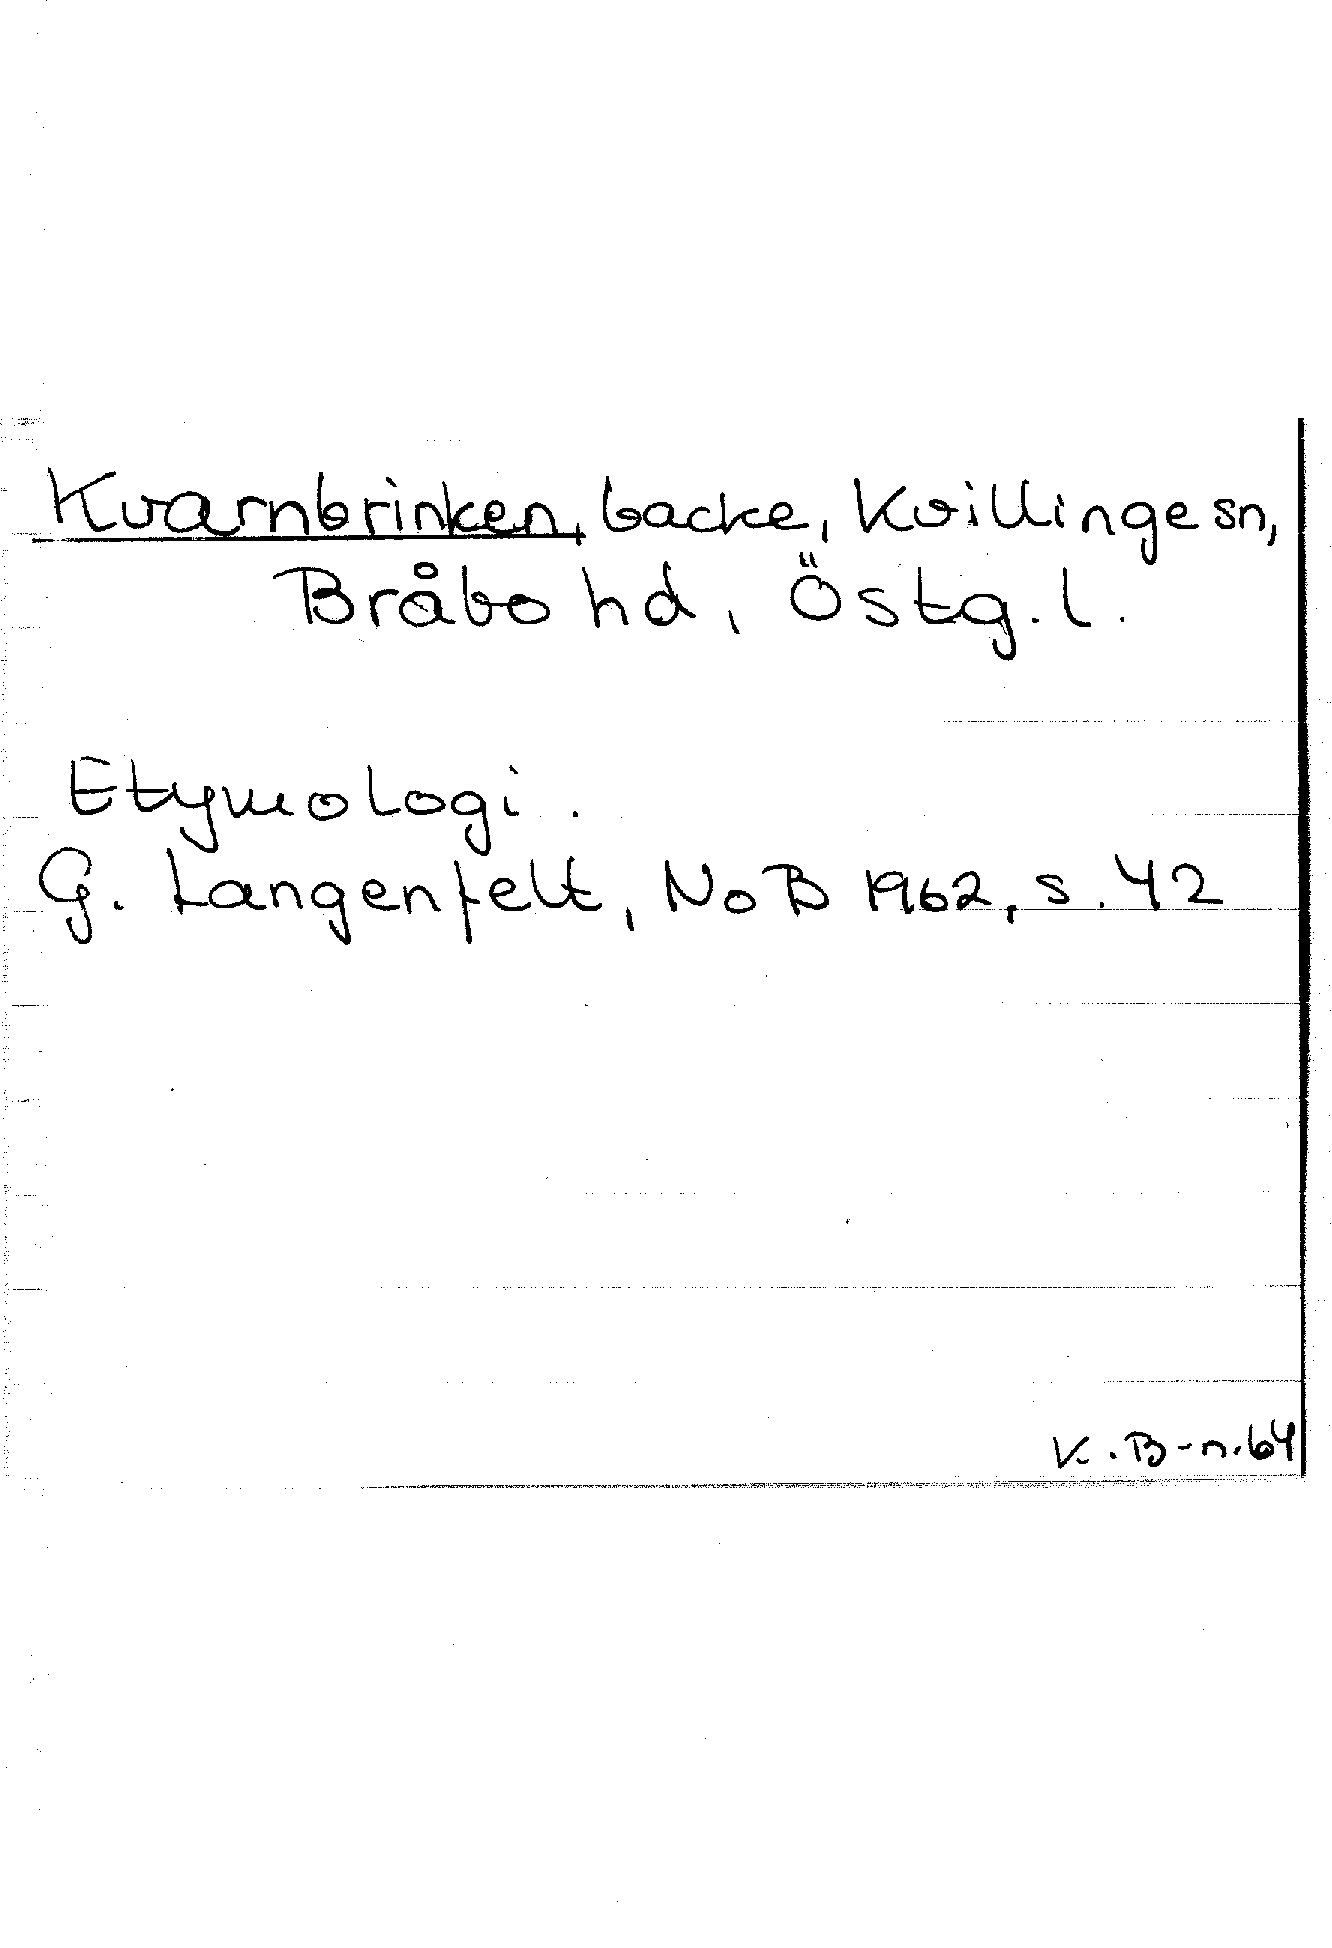 Kvarnbrinken, backe, Kvillinge sn,
Bråbo hd, Östg. l.
Etymologi.
G. Langenfelt, NoB 1962, s. 42
K. B-n. 64